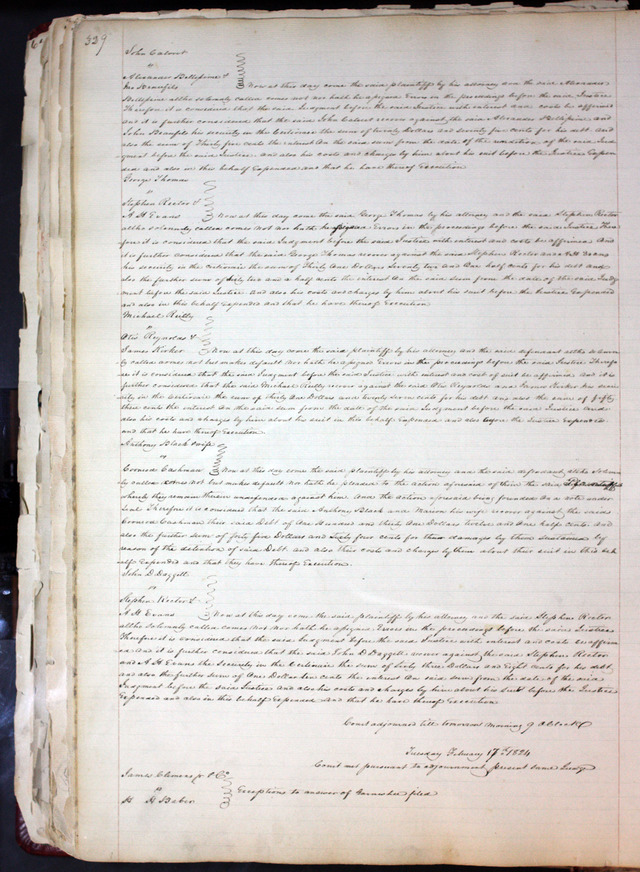 329
John Calvert
vs
Alexander Bellissime &
Jno Beaufils Now at this day come the said plaintiff by his attorney and the said Alexander
Bellissime altho solemnly called comes not nor hath he assigned Errors in the proceedings before the said Justice
Therefore it is considered that the said Judgment before the said Justice with interest and costs be affirmed
and it is further considered that the said John Calvert recover against the said Alexander Bellissime and
John Beaufils his security in the Certiorari the sum of twenty Dollars and seventy five cents for his debt. And
also the sum of Thirty five cents the interest on the said sum from the date of the rendition of the said Jud
gment before the said Justice. and also his costs and charges by him about his suit before the Justice Expen
ded and also in this behalf Expended and that he have thereof Execution
George Thomas
vs
Stephen Rector &
A H Evans Now at this day come the said George Thomas by his attorney and the said Stephen Rector
altho solemnly called comes not nor hath he assigned Errors in the proceedings before the said Justice There
fore it is considered that the said Judgment before the said Justice with interest and costs be affirmed And
it is further considered that the said George Thomas recover against the said Stephen Rector and A H Evans
his security in the certiorari the sum of Thirty One Dollars Seventy two and One half cents for his debt and
also the further sum of sixty two and a half cents the interest on the said sum from the date of the said Judg
ment before the said Justice And also his costs and charges by him about his suit before the Justice Expended
and also in this behalf Expended and that he have thereof Execution
Michael Reilly
vs
Otis Reynolds &
James Kerker Now at this day come the said plaintiff by his attorney and the said defendant altho solemn
ly called comes not but makes default nor hath he assigned Errors in the proceedings before the said Justice Theref
ore it is considered that the said Judgment before the said Justice with interest and cost of suit be affirmed And it is
further considered that the said Michael Reilly recover against the said Otis Reynolds and James Kerker his secu
rity in the Certiorari the sum of thirty One Dollars and twenty seven cents for his debt and also the sum of fifty
three cents the interest on the said sum from the date of the said Judgment before the said Justice And
also his costs and charges by him about his suit in this behalf Expended and also before the Justice Expended
and that he have thereof Execution
Anthony Black & wife
vs
Conrad Cashman Now at this day come the said plaintiffs by his attorney and the said defendant altho Solemn
ly called comes not but makes default nor hath he pleaded to the action aforesaid of them the said
whereby they remain therein undefended against him. And the action aforesaid being founded on a note under
Seal Therefore it is considered that the said Anthony Black and Marian his wife recover against the said
Conrad Cashman their said Debt of One Hundred and thirty One Dollars Twelve and One half cents. And
also the further sum of forty five Dollars and Sixty four cents for their damages by them sustained by
reason of the detention of said Debt. and also their costs and charges by them about their suit in this beh
alf Expended and that they have thereof Execution.
John D Daggett
vs
Stephen Rector &
A H Evans Now at this day come the said plaintiff by his attorney and the said Stephen Rector
altho solemnly called comes not nor hath he assigned Errors in the proceedings before the said Justice
Therefore it is considered that the said Judgment before the said Justice with interest and costs be affirm
ed. And it is further considered that the said John D Daggett recover against the said Stephen Rector
and A H Evans the Security in the Certiorari the sum of Sixty three Dollars and Eight cents for his debt
and also the further sum of One Dollar ten cents the interest on said sum from the date of the said
Judgment before the said Justice and also his costs and charges by him about his suit before the Justice
Expended and also in this behalf Expended. And that he have thereof Execution
Court adjourned till tomorrow morning 9 Oclock
Tuesday February 17th 1824
Court met pursuant to adjournment present same Judge
James Clemens jr & Co
vs Exceptions to answer of Garnishee filed
H H Baber